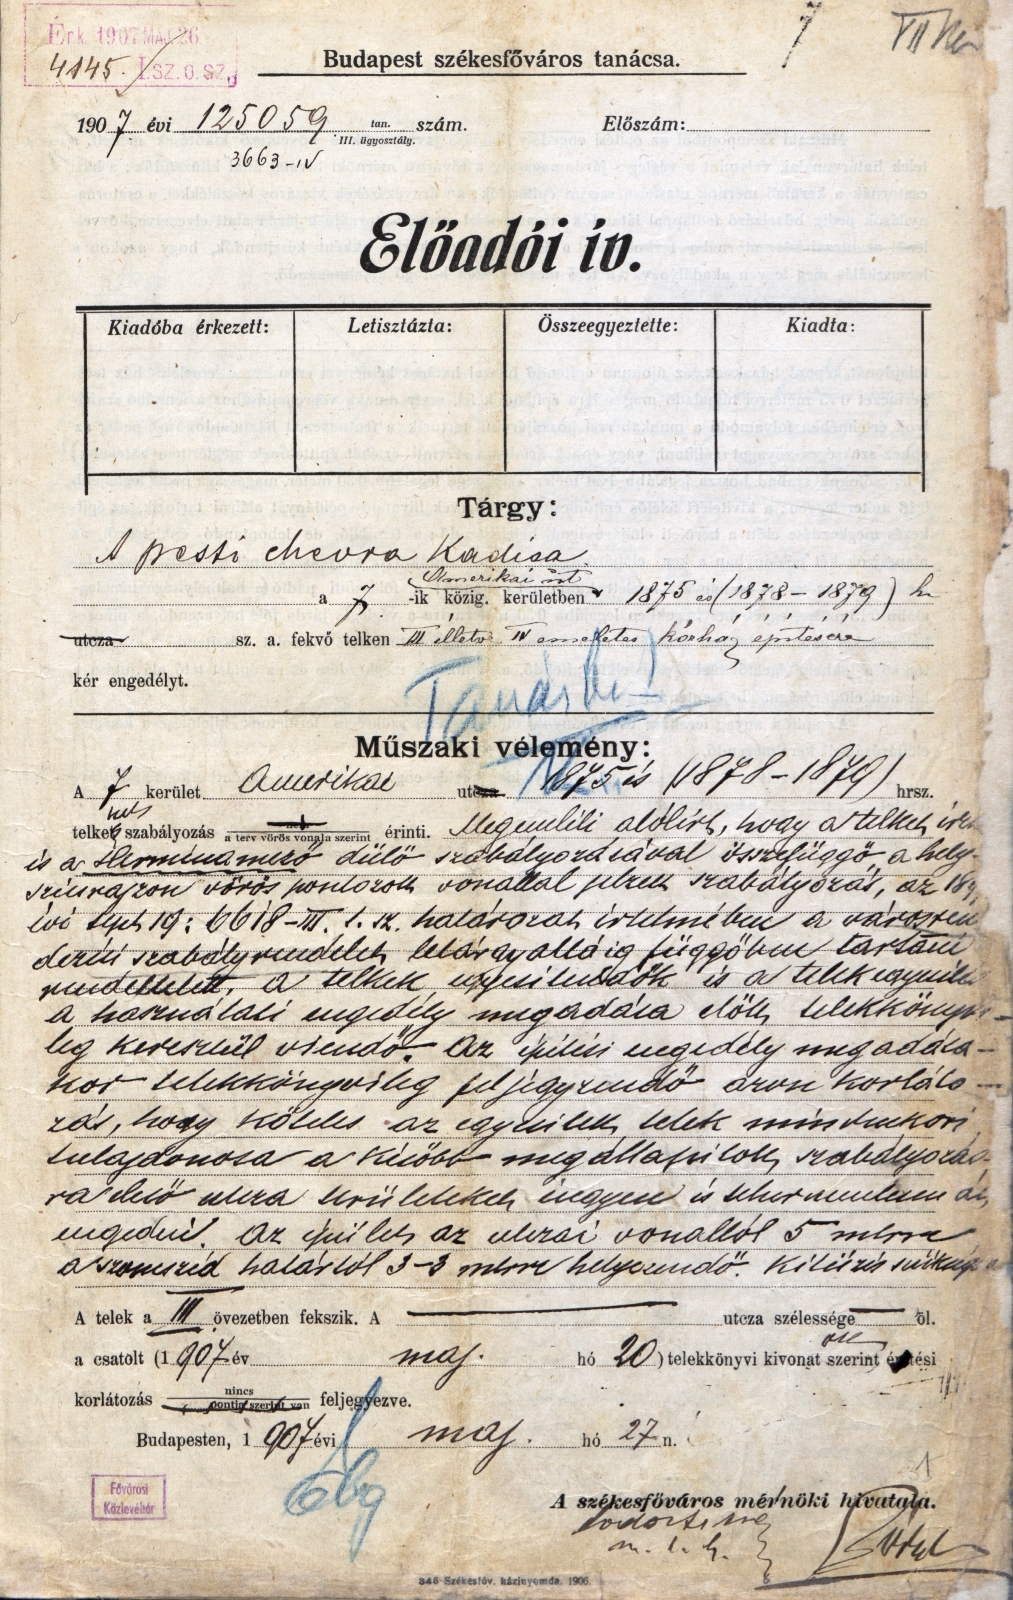 Érk. 1907 MÁJ 26
4145. I. SZ. O. SZ.
7
VII ker
Budapest székesfőváros tanácsa.
1907 évi 125059 tan. III. ügyosztály. szám. Előszám:
3663-IV
Előadói ív.
Kiadóba érkezett: Letisztázta: Összeegyeztette: Kiadta:
Tárgy:
A pesti chevra Kadisa
Amerikai út
a 7 -ik közig. kerületben 1875 és (1878-1879) h
utcza sz. a. fekvő telken III illetv IV emeletes kórház építésére
kér engedélyt.
Műszaki vélemény:
A 7 kerület Amerikai utcza 1875 és (1878-1879) hrsz.
telket szabályozás a terv vörös vonala szerint érinti. Megemlíti alólirt, hogy a telket
is a Herminamező dülő szabályozásával összefüggő, a hely-
szinrajzon vörös pontozott vonallal jelzett szabályozás, az
évi sept 19: 6618-III. t. sz. határozat értelmében a városren
dezési szabályrendelet letárgyallásig függőben tartani
rendeltetett. a telkek egyesitendők is a telekegyesítés
a használati engedély megadása előtt telekkönyvi-
leg keresztül viendő. Az épitési engedély megadása-
kor telekkönyvileg feljegyzendő azon korláto-
zás, hogy köteles az egyesített telek mindenkori
tulajdonosa a később megállapított szabályozás
ra eső utcza területeket ingyen és tehermentesen át
engedni. Az épület az utczai vonaltól 5 mtrre
a szomszéd határtól 3-3 mtrre helyezendő. Kitűzés szükséges
A telek a III övezetben fekszik. A utcza szélessége öl.
a csatolt (1907 év maj. hó 20) telekkönyvi kivonat szerint építési
korlátozás nincs pontja szerint van feljegyezve.
Budapesten, 1907 évi maj. hó 27 n.
Fővárosi
Közlevéltár
A székesfőváros mérnöki hivatala.
345 Székesfőv. házinyomda. 1906.